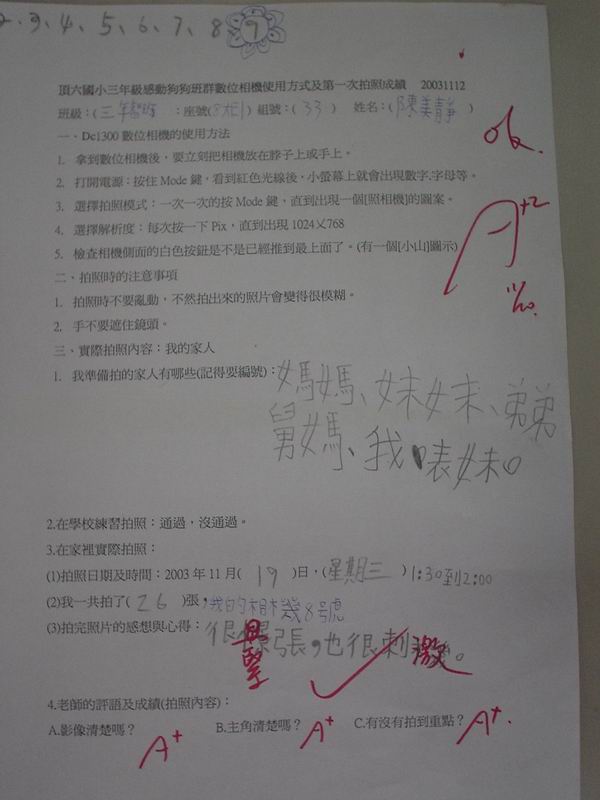 2、3、4、5、6、7、8 9
頂六國小三年級感動狗狗班群數位相機使用方式及第一次拍照成績 20031112
班級：(三年智班 ：座號( ) 組號：( 33 ) 姓名：(陳美靜 )
ok.
一、Dc1300 數位相機的使用方法
1. 拿到數位相機後，要立刻把相機放在脖子上或手上。
2. 打開電源：按住 Mode 鍵，看到紅色光線後，小螢幕上就會出現數字.字母等。
3. 選擇拍照模式：一次一次的按 Mode 鍵，直到出現一個[照相機]的圖案。
A+2
4. 選擇解析度：每次按一下 Pix，直到出現 1024╳768
5. 檢查相機側面的白色按鈕是不是已經推到最上面了。(有一個[小山]圖示)
二、拍照時的注意事項
1. 拍照時不要亂動，不然拍出來的照片會變得很模糊。
2. 手不要遮住鏡頭。
三、實際拍照內容：我的家人
1. 我準備拍的家人有哪些(記得要編號)：媽媽、妹妹、弟弟
舅媽、我、表妹。
2.在學校練習拍照：通過，沒通過。
3.在家裡實際拍照：
(1)拍照日期及時間：2003 年 11 月( 19 )日，(星期三 )1:30到2:00
(2)我一共拍了( 26 )張，我的相機幾8號虎
(3)拍完照片的感想與心得：很緊張，也很刺激。
4.老師的評語及成績(拍照內容)：
A.影像清楚嗎？ A+ B.主角清楚嗎？ A+ C.有沒有拍到重點？ A+.